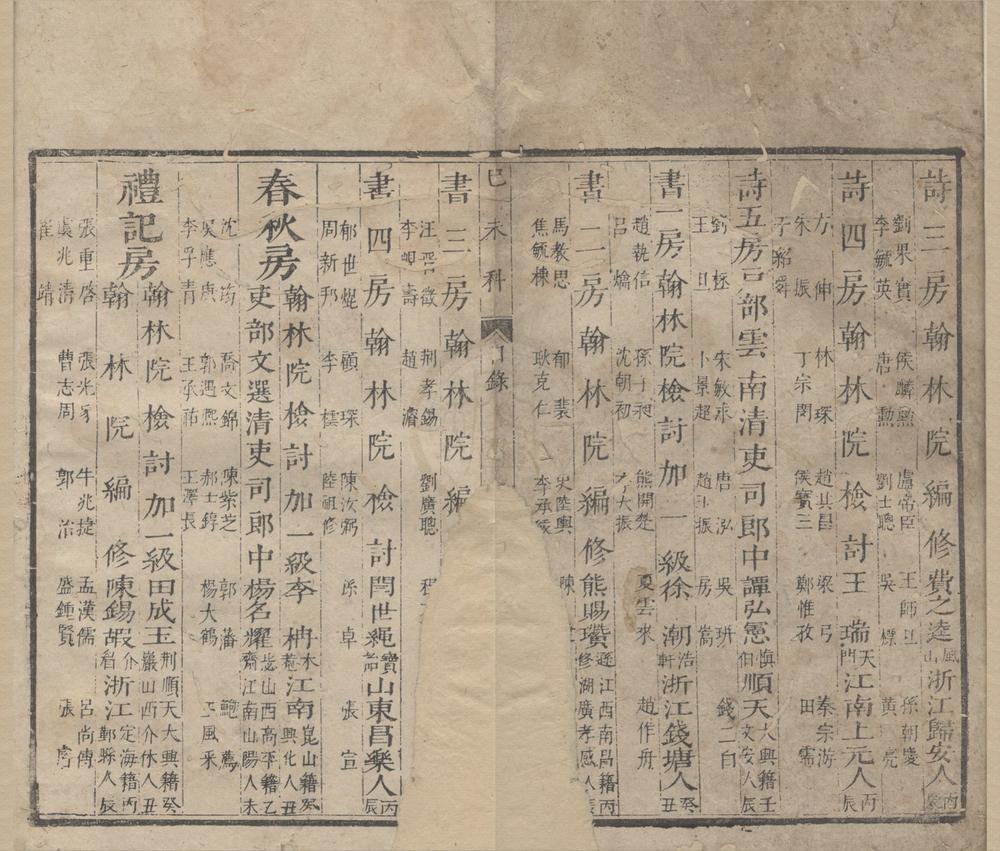 詩三房翰林院編修費之逵鳳山浙江歸安人丙辰
劉果實 侯麟勲 盧帝臣 王師旦 孫朝慶
李毓英 唐勲 劉士聰 吳標 黃亮
詩四房翰林院檢討王瑞天門江南上元人丙辰
方伸 林琛 趙其昌 梁弓 秦宗游
朱振 丁宗閔 侯賓三 鄭惟孜 田需
詩五房户部雲南清吏司郎中譚弘憲慎伯順天大興籍文安人壬辰
劉棪 朱敏求 唐泓 吳玭 錢二白
王旦 卜景超 趙振 房嵩
書一房翰林院檢討加一級徐潮浩軒浙江錢塘人癸丑
趙執信 孫子昶 熊開楚 夏雲來 趙作舟
呂熵 沈朝初 大振
書二房翰林院編修熊賜瓚遜修江西南昌籍湖廣孝感人辰
馬教思 郁裴 史陸輿 陳
焦毓棟 耿克仁 李承
己未科 目錄
書三房翰林院編
汪晉徵 荆孝錫 劉廣聰 程
李峴壽 趙濬
書四房翰林院檢討閆世繩寶山東昌樂人丙辰
郁世焜 顧琛 陳汝弼 孫卓 張宣
周新邦 李橒 陸祖修
春秋房翰林院檢討加一級李枬木菴江南崑山籍興化人癸丑
吏部文選清吏司郎中楊名耀山西高平籍江南山陽人乙未
沈筠 喬文錦 陳紫芝 郭藩 鮑薦
吳應庚 郭遇熙 郝士錞 楊大鶴 王風采
李孚青 王承祐 王澤長
禮記房翰林院檢討加一級田成玉荆巖順天大興籍山西介休人癸丑
翰林院編修陳錫嘏介眉浙江定海籍鄞縣人丙辰
張重啓 張光豸 牛兆捷 孟漢儒 呂尚傳
虞兆清 曹志周 郭治 盛鍾賢 張
崔靖